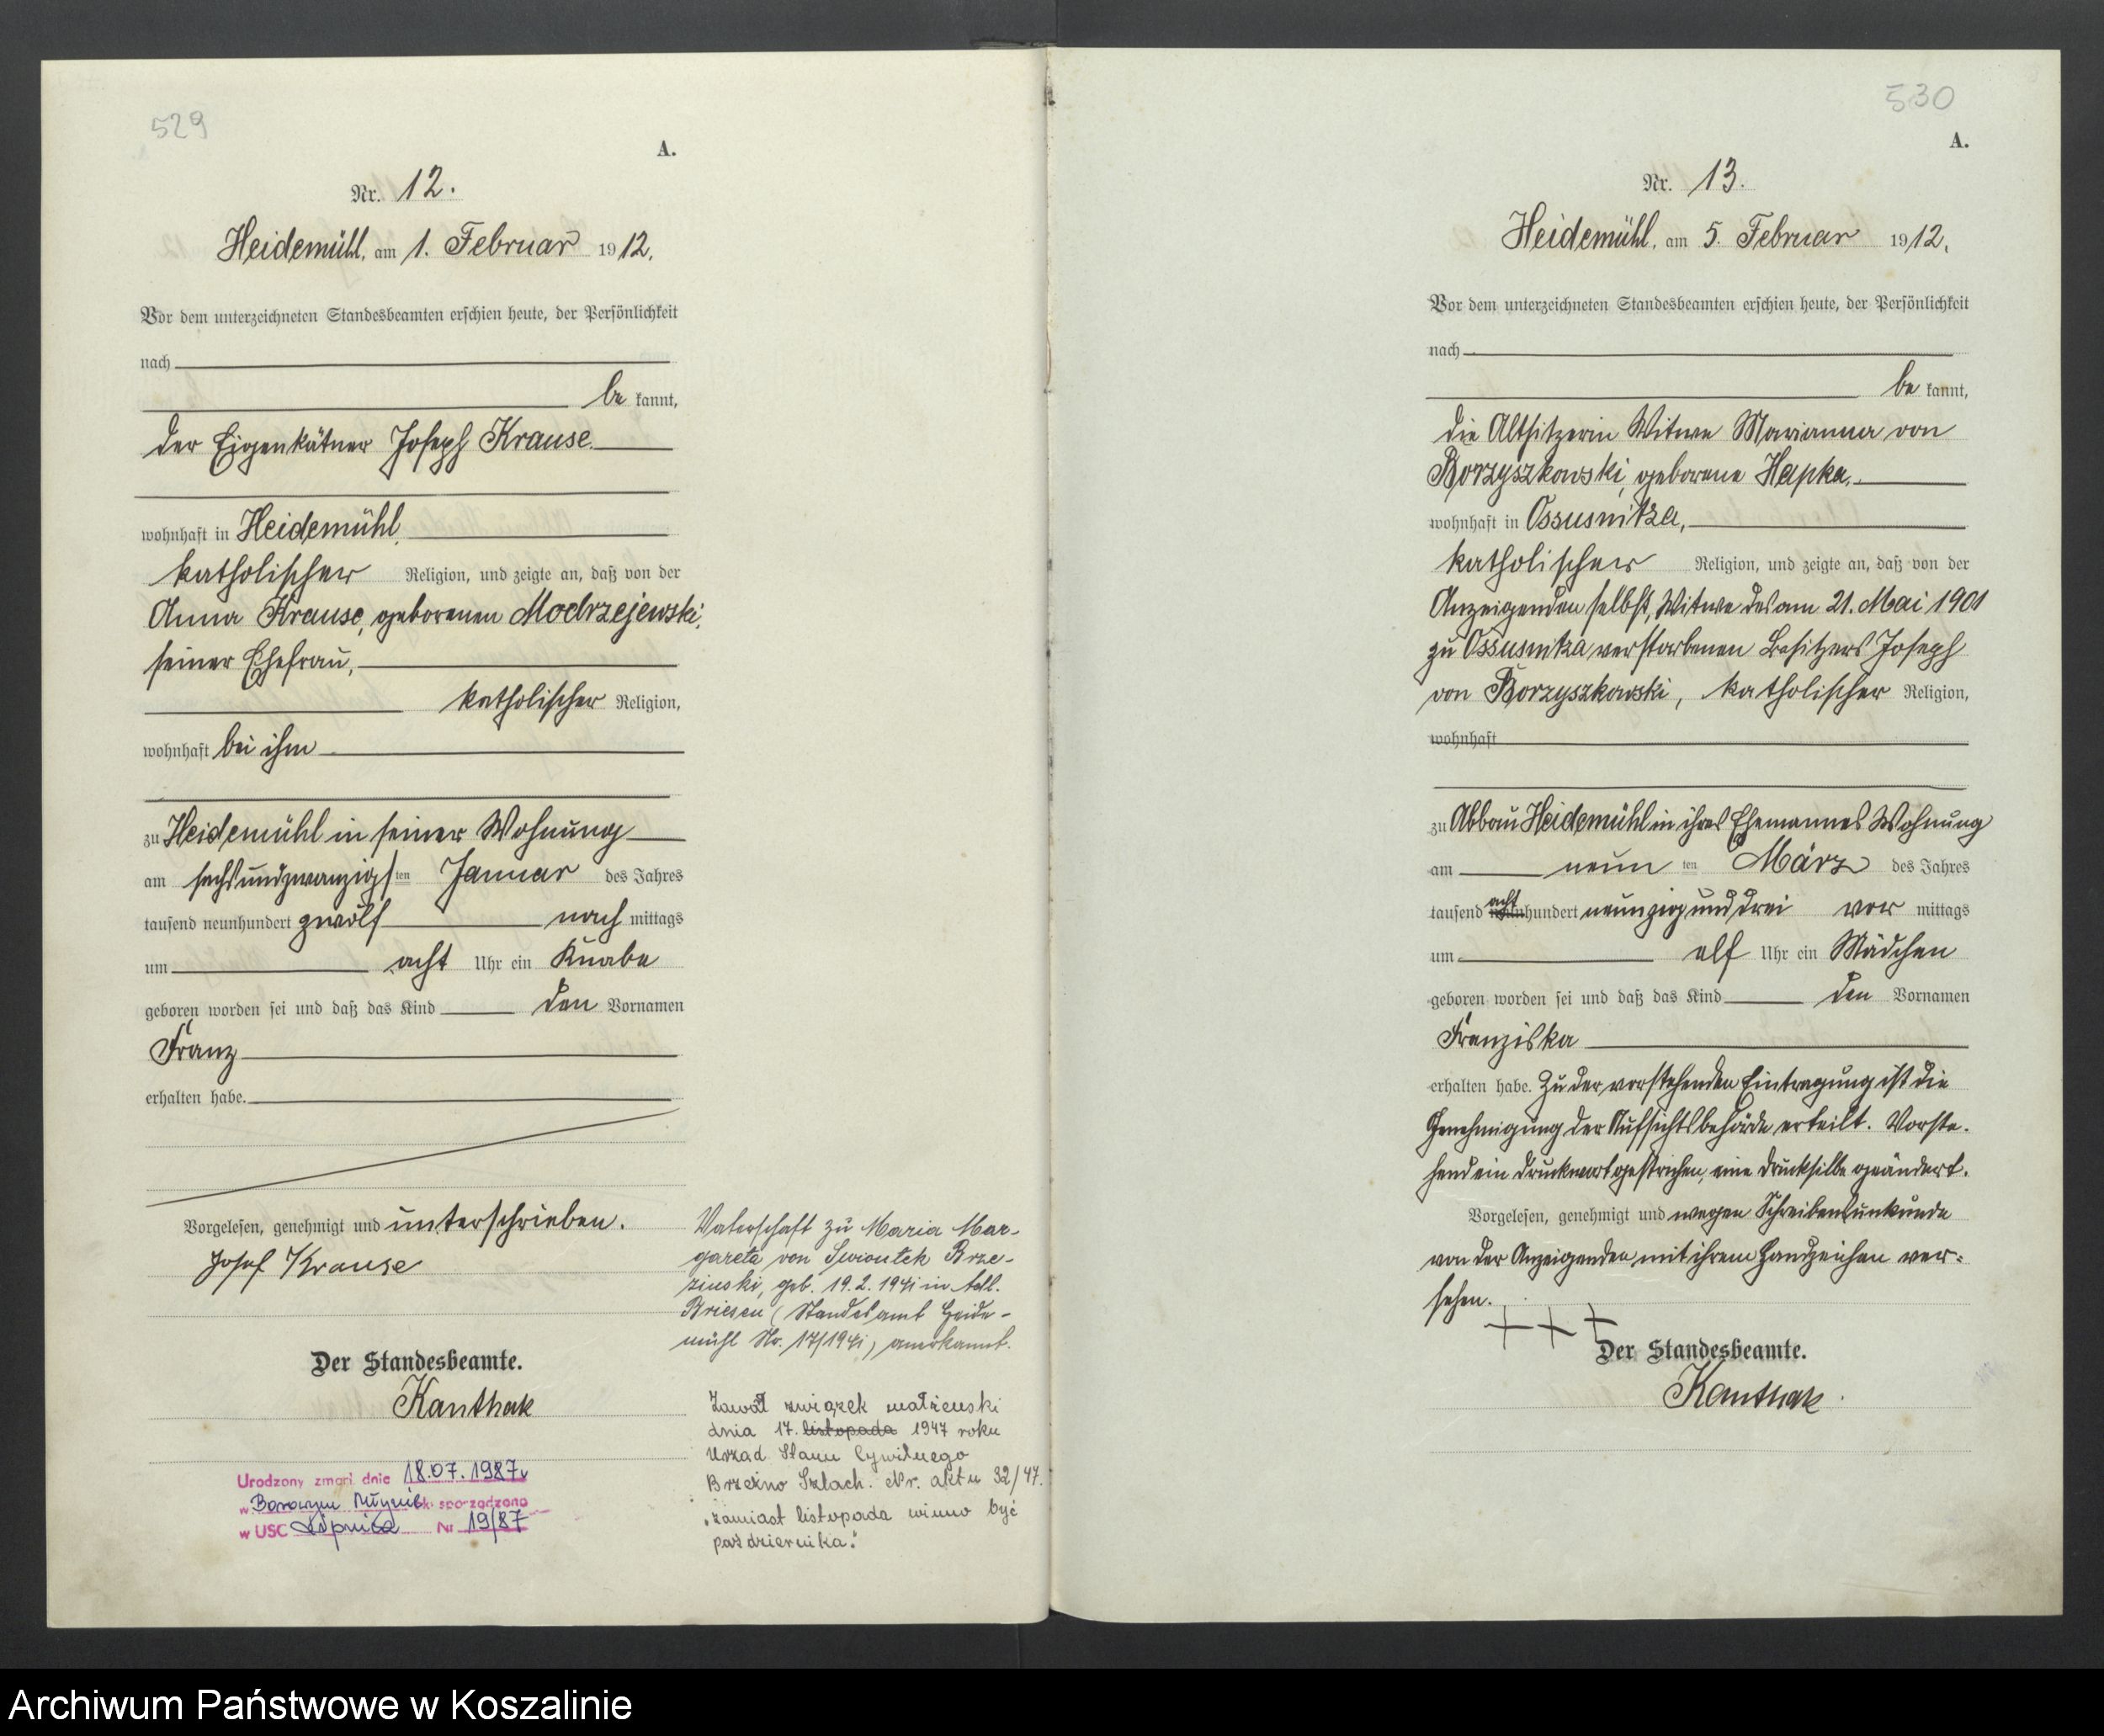 529
A.
Nr. 12.
Heidemühl, am 1. Februar 1912.
Vor dem unterzeichneten Standesbeamten erschien heute, der Persönlichkeit
nach
be kannt,
der Eigenkätner Joseph Krause.
wohnhaft in Heidemühl,
katholischer Religion, und zeigte an, daß von der
Anna Krause, geborenen Modrzejewski,
seiner Ehefrau,
katholischer Religion,
wohnhaft bei ihm
zu Heidemühl in seiner Wohnung
am sechsundzwanzigsten Januar des Jahres
tausend neunhundert zwölf nach mittags
um acht Uhr ein Knabe
geboren worden sei und daß das Kind den Vornamen
Franz
erhalten habe.
Vorgelesen, genehmigt und unterschrieben.
Josef Krause
Der Standesbeamte.
Kanthak
Urodzony zmarł dnia 18.07.1987 r
w Borowym Młynie sporządzono
w USC Lipnica Nr 19/87
Vaterschaft zu Maria Mar-
gareta von Swiontek Brze-
zinski, geb. 19.2.1941 in Adl.
Briesen (Standesamt Heide-
mühl Nr. 17/1941) anerkannt.
Zawarł związek małżeński
dnia 17. listopada 1947 roku
Urząd Stanu Cywilnego
Brzeźno Szlach. Nr. aktu 32/47.
"zamiast listopada winno być
października."
530
A.
Nr. 13.
Heidemühl, am 5. Februar 1912.
Vor dem unterzeichneten Standesbeamten erschien heute, der Persönlichkeit
nach
be kannt,
die Altsitzerin Witwe Marianna von
Borzyszkowski, geborene Hapka,
wohnhaft in Ossusnitza,
katholischer Religion, und zeigte an, daß von der
Anzeigenden selbst, Witwe des am 21. Mai 1901
zu Ossusnitza verstorbenen Besitzers Joseph
von Borzyszkowski, katholischer Religion,
wohnhaft
zu Abbau Heidemühl in ihres Ehemannes Wohnung
am neun ten März des Jahres
tausend acht neunhundert neunzig und drei vor mittags
um elf Uhr ein Mädchen
geboren worden sei und daß das Kind den Vornamen
Franziska
erhalten habe. Zu der vorstehenden Eintragung ist die
Genehmigung der Aufsichtsbehörde erteilt. Vorste-
hend ein Druckwort gestrichen, eine Drucksilbe geändert.
Vorgelesen, genehmigt und wegen Schreibensunkunde
von der Anzeigenden mit ihrem Handzeichen ver-
sehen.
+++
Der Standesbeamte.
Kanthak
Archiwum Państwowe w Koszalinie